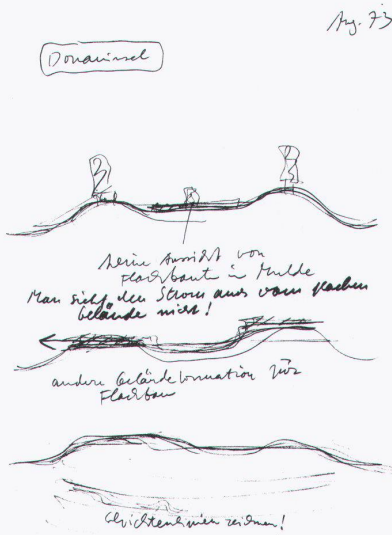 Aug. 73
Donauinsel
keine Aussicht von
Flachbaut in Mulde
Man sieht den Strom aus vom flachen
Gelände nicht!
andere Geländeformation für
Flachbau
Schichtenlinien zeichnen!